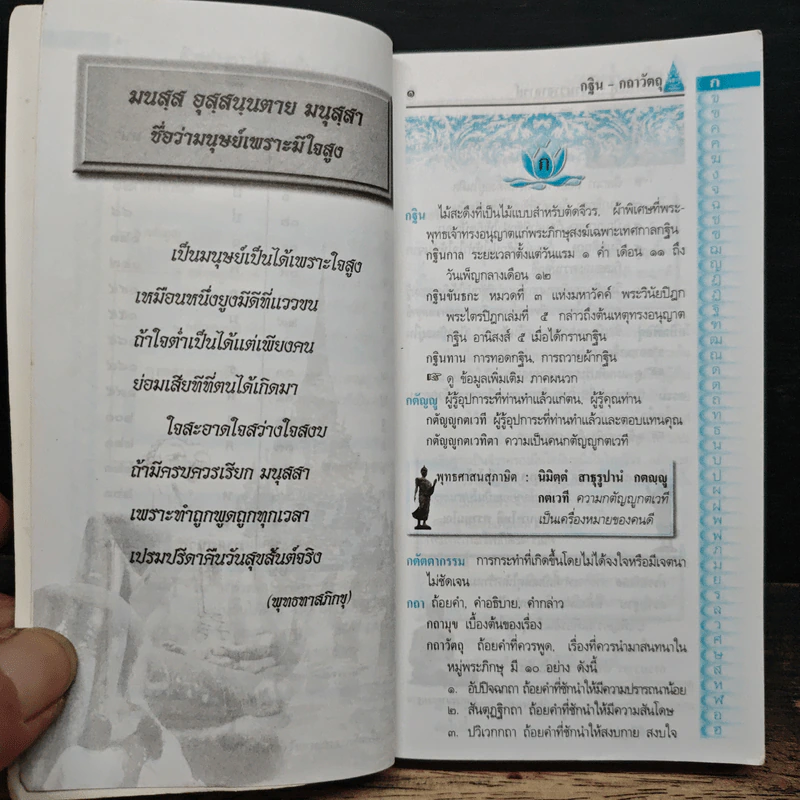 มนสฺส อุสฺสนฺนตาย มนุสฺสา
ชื่อว่ามนุษย์เพราะมีใจสูง
เป็นมนุษย์เป็นได้เพราะใจสูง
เหมือนหนึ่งยูงมีดีที่แววขน
ถ้าใจต่ำเป็นได้แต่เพียงคน
ย่อมเสียทีที่ตนได้เกิดมา
ใจสะอาดใจสว่างใจสงบ
ถ้ามีครบควรเรียก มนุสสา
เพราะทำถูกพูดถูกทุกเวลา
เปรมปรีดาคืนวันสุขสันต์จริง
(พุทธทาสภิกขุ)
๑ กฐิน - กถาวัตถุ
ก
กฐิน ไม้สะดึงที่เป็นไม้แบบสำหรับตัดจีวร, ผ้าพิเศษที่พระ-
พุทธเจ้าทรงอนุญาตแก่พระภิกษุสงฆ์เฉพาะเทศกาลกฐิน
กฐินกาล ระยะเวลาตั้งแต่วันแรม ๑ ค่ำ เดือน ๑๑ ถึง
วันเพ็ญกลางเดือน ๑๒
กฐินขันธกะ หมวดที่ ๓ แห่งมหาวัคค์ พระวินัยปิฎก
พระไตรปิฎกเล่มที่ ๕ กล่าวถึงต้นเหตุทรงอนุญาต
กฐิน อานิสงส์ ๕ เมื่อได้กรานกฐิน
กฐินทาน การทอดกฐิน, การถวายผ้ากฐิน
☞ ดู ข้อมูลเพิ่มเติม ภาคผนวก
กตัญญู ผู้รู้อุปการะที่ท่านทำแล้วแก่ตน, ผู้รู้คุณท่าน
กตัญญูกตเวที ผู้รู้อุปการะที่ท่านทำแล้วและตอบแทนคุณ
กตัญญูกตเวทิตา ความเป็นคนกตัญญูกตเวที
พุทธศาสนสุภาษิต : นิมิตฺตํ สาธุรูปานํ กตญฺญู
กตเวที ความกตัญญูกตเวที
เป็นเครื่องหมายของคนดี
กตัตตากรรม การกระทำที่เกิดขึ้นโดยไม่ได้จงใจหรือมีเจตนา
ไม่ชัดเจน
กถา ถ้อยคำ, คำอธิบาย, คำกล่าว
กถามุข เบื้องต้นของเรื่อง
กถาวัตถุ ถ้อยคำที่ควรพูด, เรื่องที่ควรนำมาสนทนาใน
หมู่พระภิกษุ มี ๑๐ อย่าง ดังนี้
๑. อัปปิจฉกถา ถ้อยคำที่ชักนำให้มีความปรารถนาน้อย
๒. สันตุฏฐิกถา ถ้อยคำที่ชักนำให้มีความสันโดษ
๓. ปวิเวกกถา ถ้อยคำที่ชักนำให้สงบกาย สงบใจ
ก